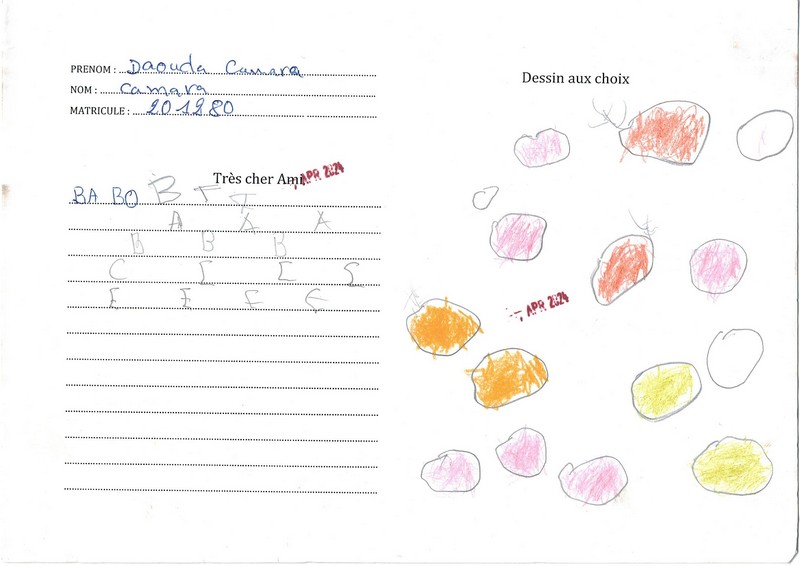 PRENOM : Daouda Camara
NOM : Camara
MATRICULE : 201280
Très cher Ami
APR 2024
BA BO B
A A A
B B B
C
E E
Dessin aux choix
APR 2024